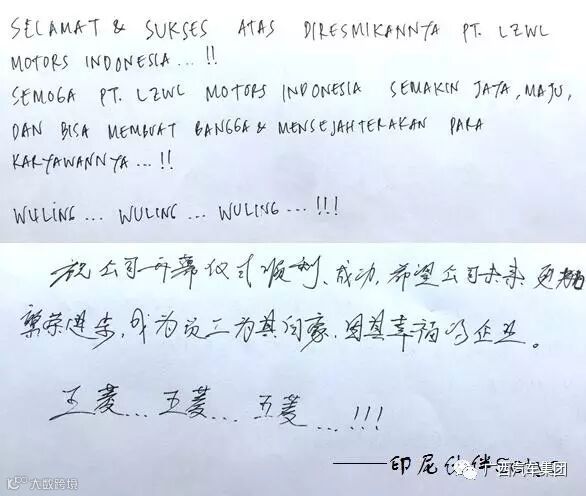 SELAMAT & SUKSES ATAS DIRESMIKANNYA PT. LZWL
MOTORS INDONESIA...!!
SEMOGA PT. LZWL MOTORS INDONESIA SEMAKIN JAYA, MAJU,
DAN BISA MEMBUAT BANGGA & MENSEJAHTERAKAN PARA
KARYAWANNYA...!!
WULING... WULING... WULING...!!!
祝公司开幕仪式顺利、成功,希望公司未来更加
繁荣进步,成为员工为其自豪、因其幸福的企业。
五菱...五菱...五菱...!!!
——印尼伙伴
广西汽车集团
大数跨境